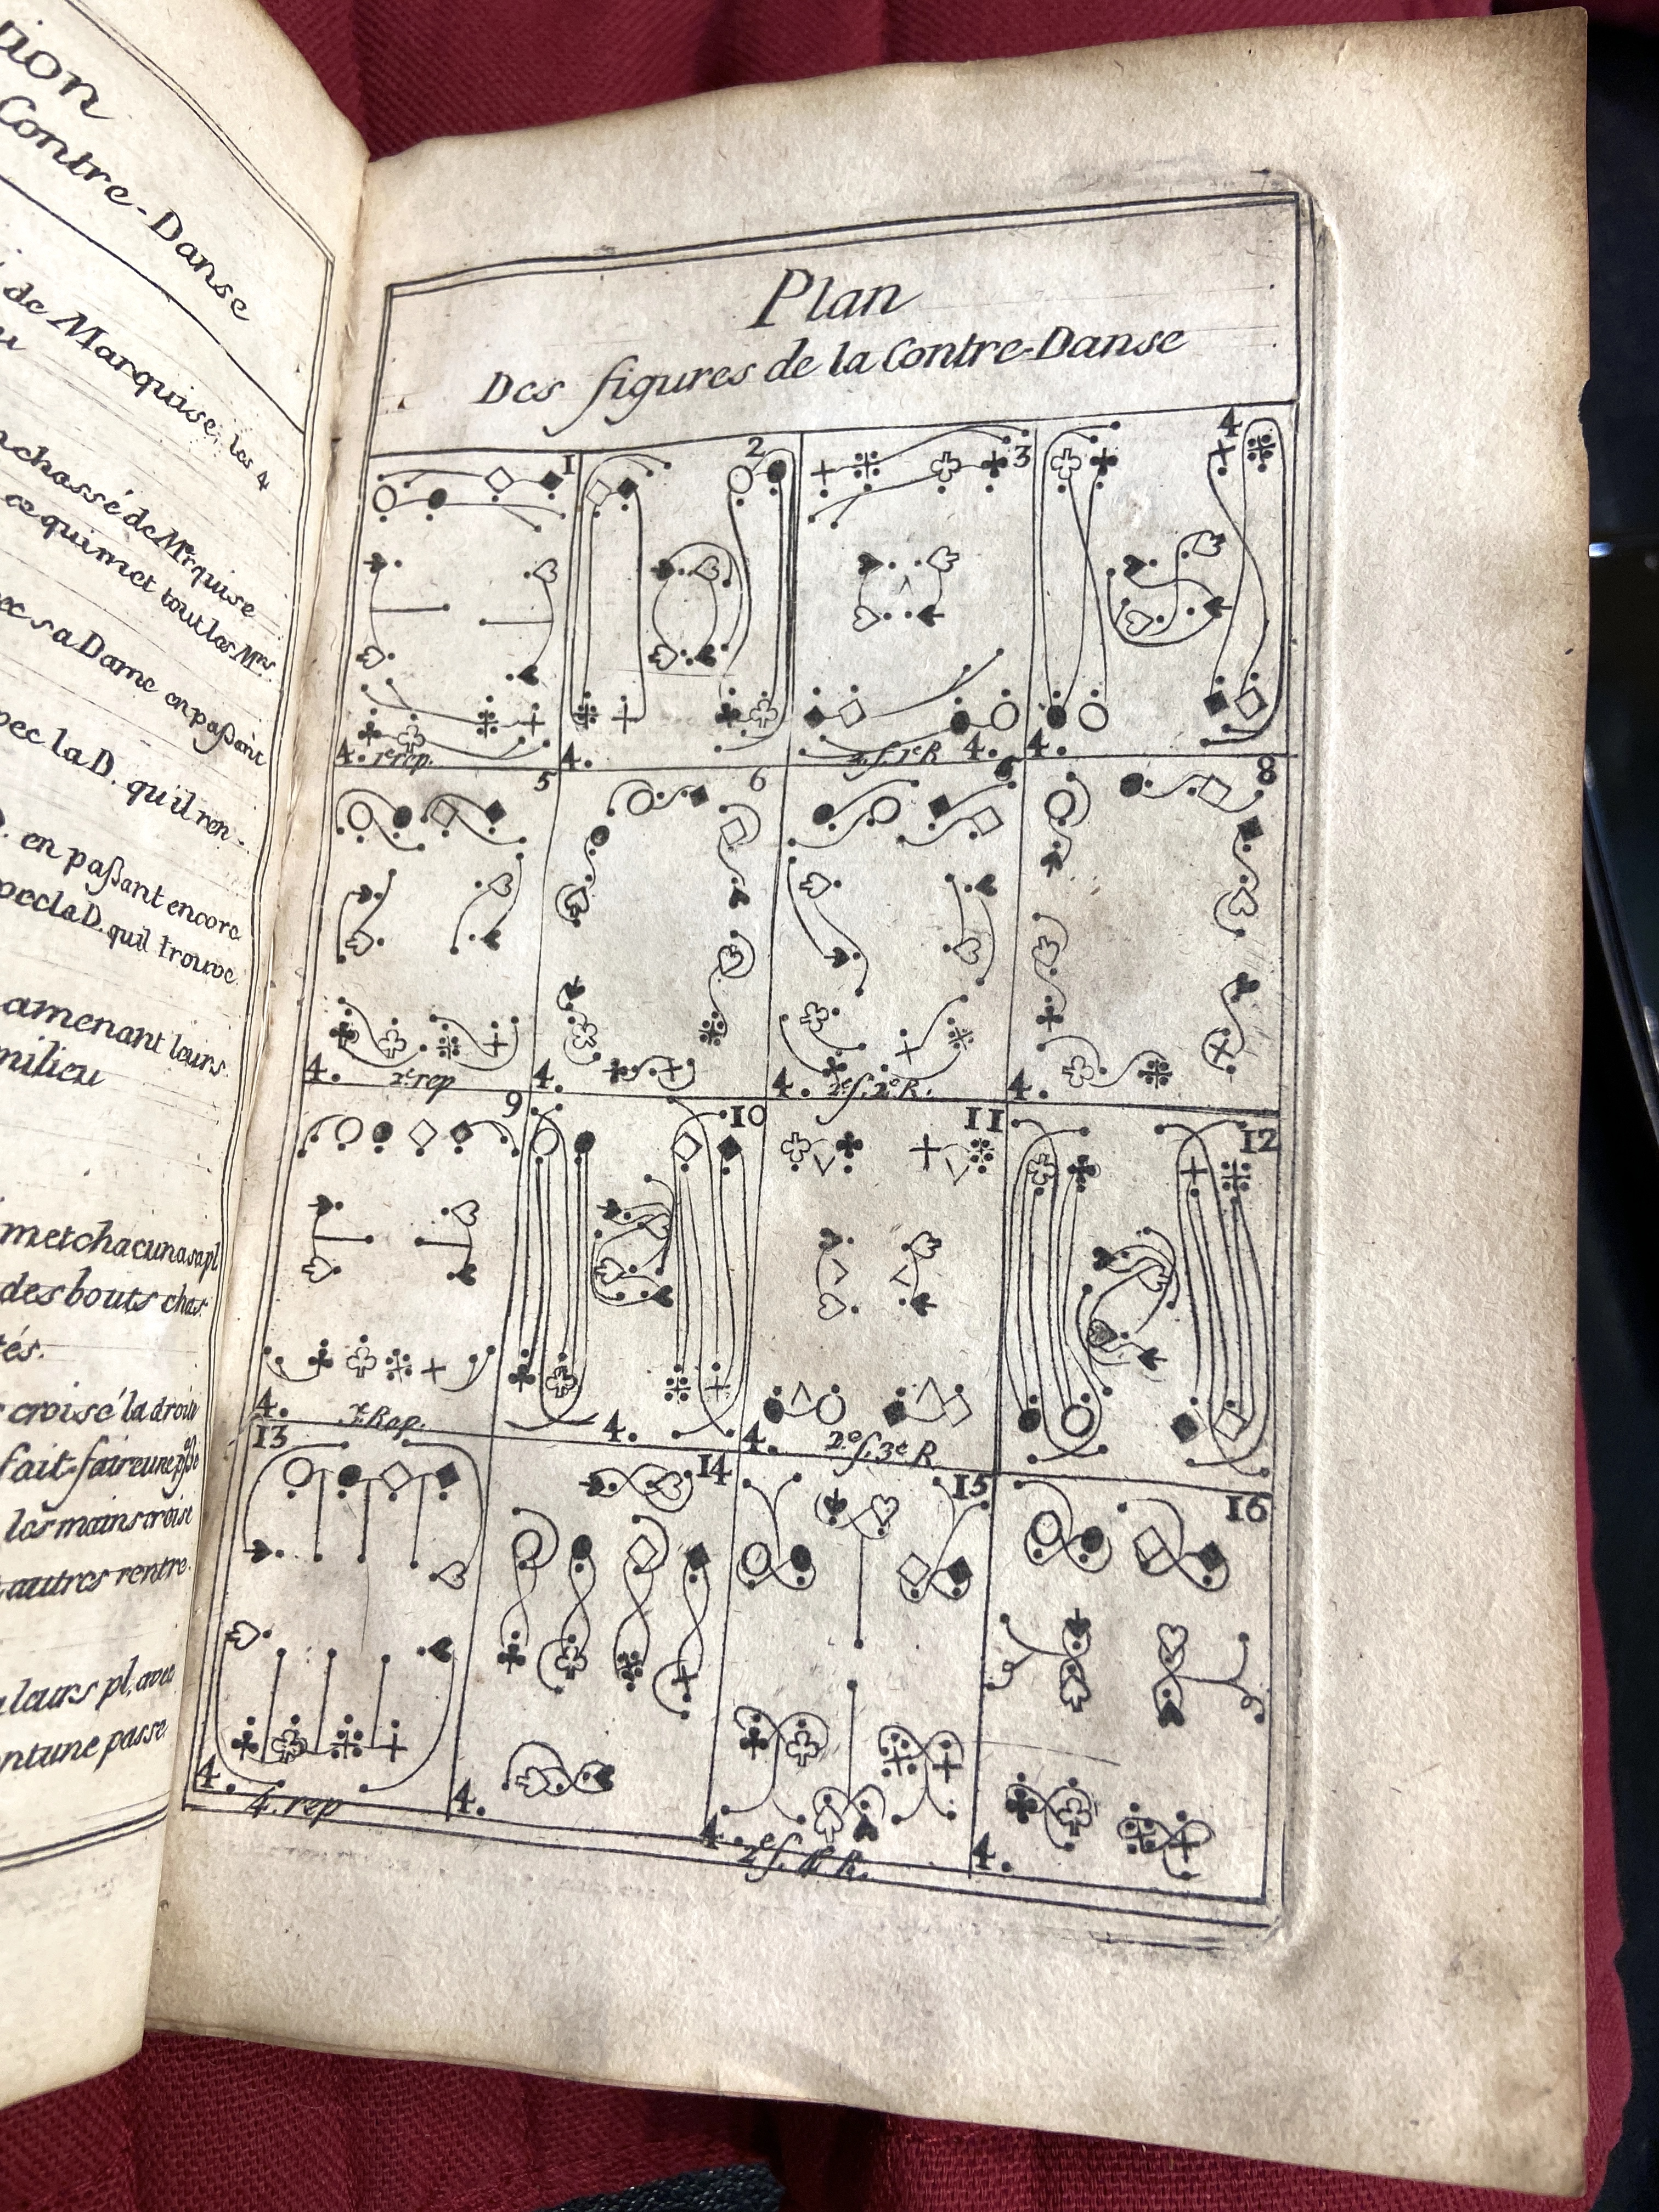 tion
Contre-Danse
de Marquise, les 4
chassé de Mrquise
ce qui met tout les Mrs.
ec sa Dame en paßant
vec la D. qu'il ren-
. en paßant encore
vec la D. quil trouve
amenant leurs
milieu
met chacun a sa pl
des bouts chas
tés.
croisé la droite
fait faire une paße
les mains croise
autres rentre
leurs pl. avec
ntune passe
Plan
Des figures de la Contre-Danse
1 2 3 4
4. 1e rep. 4. 2e f. 1e R 4. 4.
5 6 6 8
4. 2e rep 4. 4. 2e f. 2e R. 4.
9 10 11 12
4. 3e Rep. 4. 4. 2e f. 3e R.
13 14 15 16
4. 4e rep 4. 4. 2e f. 4e R. 4.